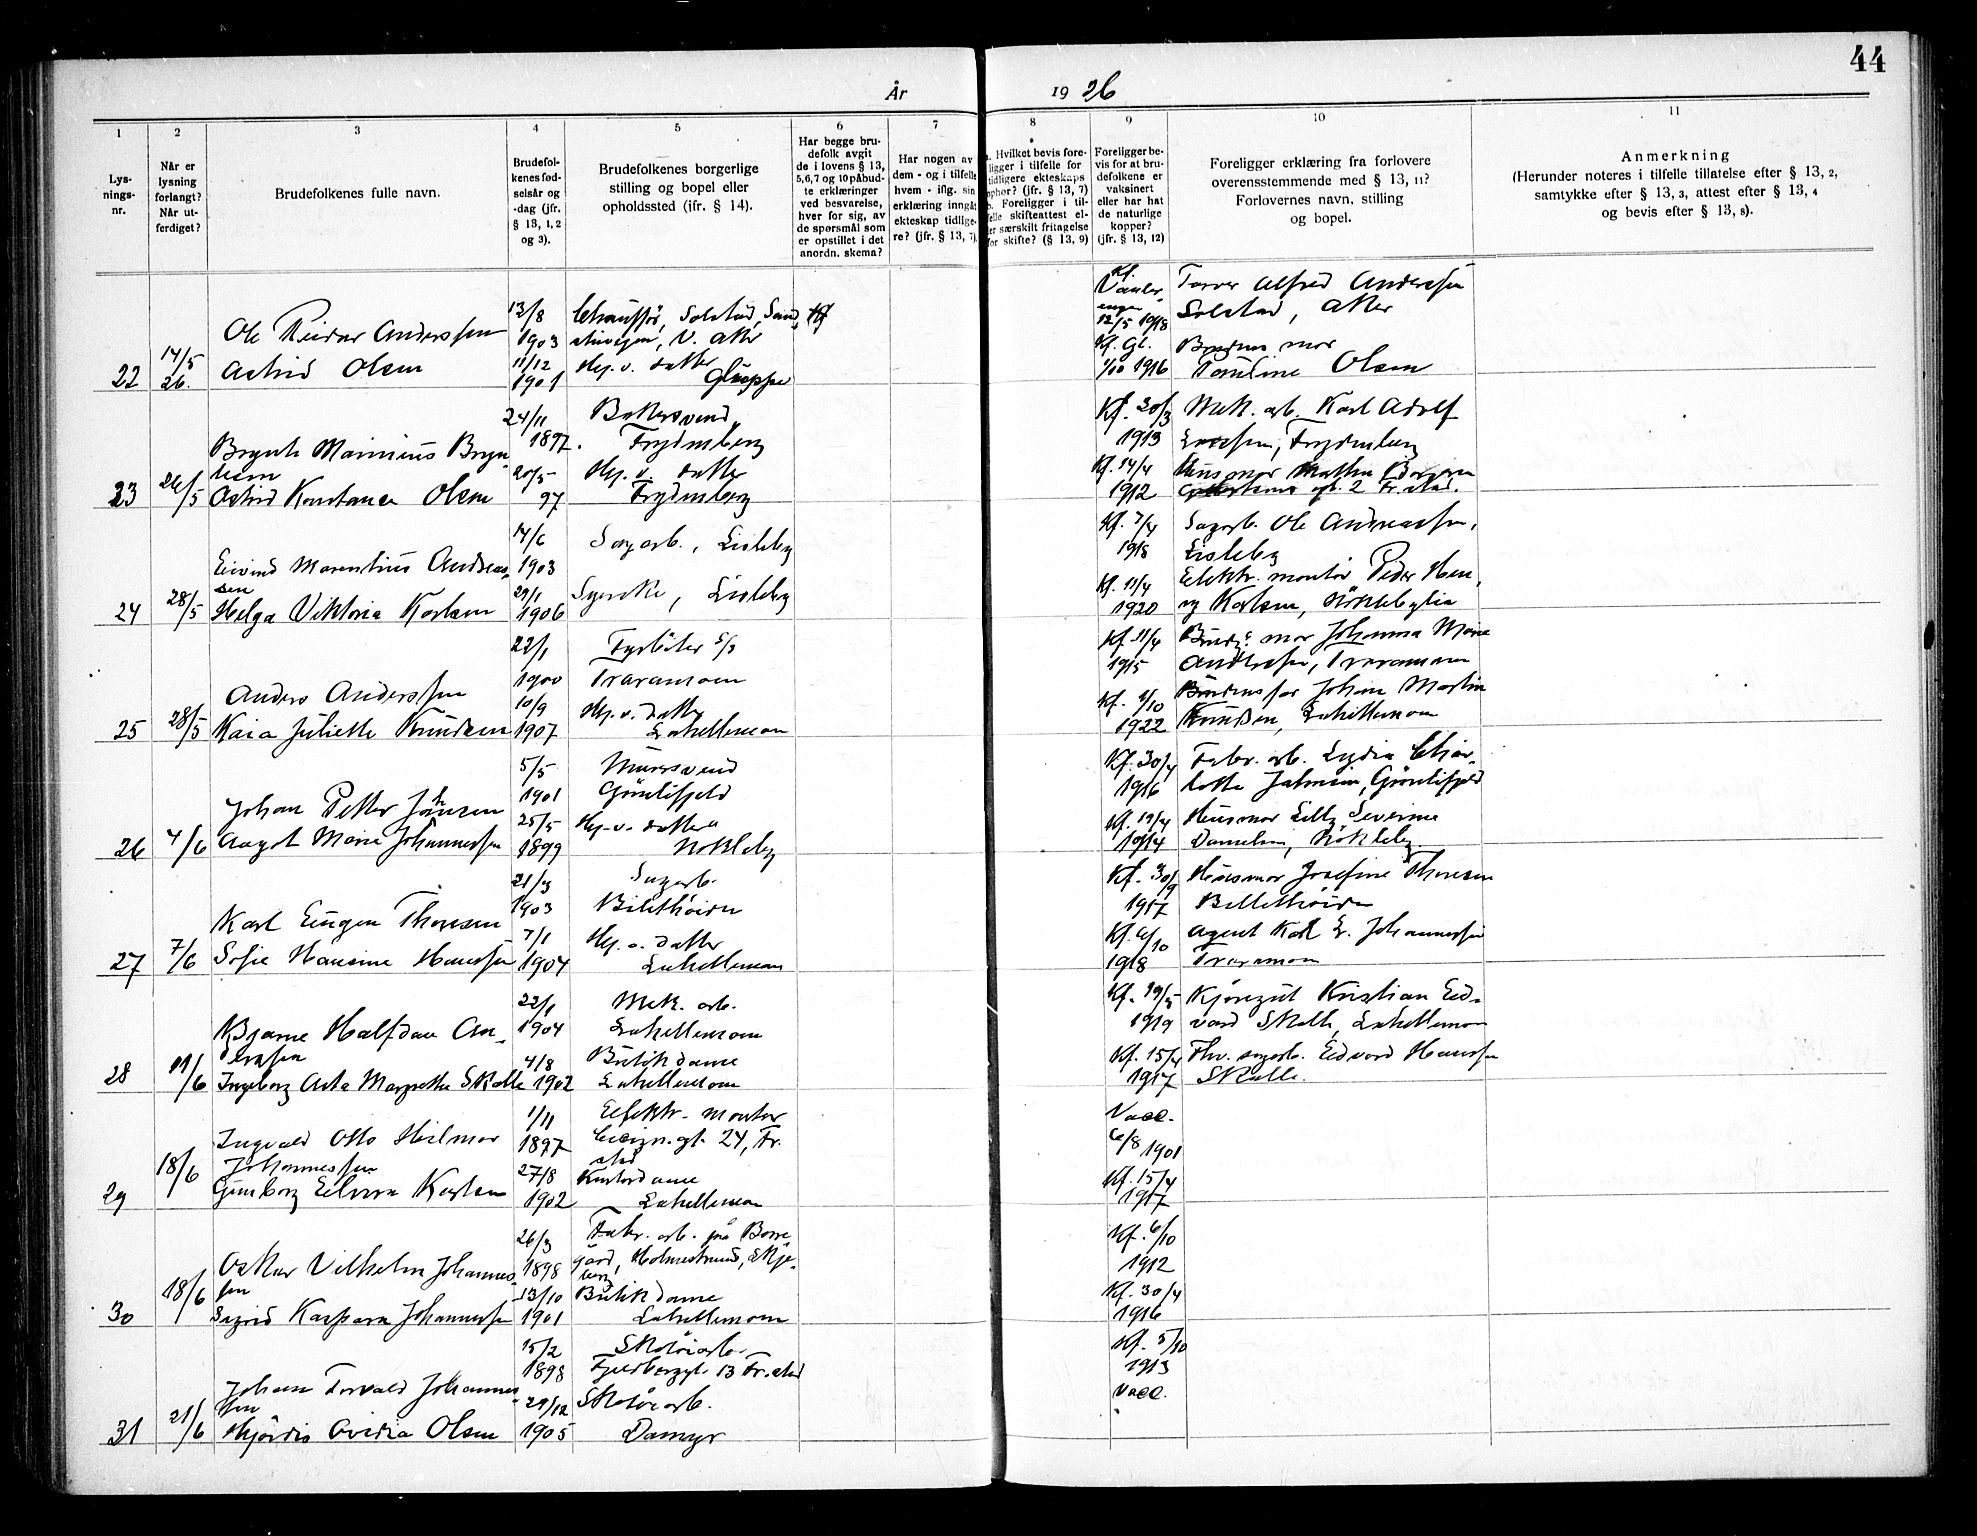 44
År
19 26
1
2
3
4
5
6
7
8
9
10
11
Lys-
nings-
nr.
Når er
lysning
forlangt?
Når ut-
ferdiget?
Brudefolkenes fulle navn.
Brudefol-
kenes fød-
selsår og
-dag (jfr.
§ 13, 1, 2
og 3).
Brudefolkenes borgerlige
stilling og bopel eller
opholdssted (ifr. § 14).
Har begge bru-
defolk avgit
de i lovens § 13,
5,6,7 og 10 påbud-
te erklæringer
ved besvarelse,
hver for sig, av
de spørsmål som
er opstillet i det
anordn. skema?
Har nogen av
dem - og i tilfelle
hvem - iflg. sin
erklæring inngått
ekteskap tidlige-
re? (jfr. § 13, 7).
Hvilket bevis fore-
ligger i tilfelle for
tidligere ekteskaps
ophør? (jfr. § 13, 7)
Foreligger i til-
felle skifteattest el-
ler særskilt fritagelse
for skifte? (§ 13, 9)
Foreligger be-
vis for at bru-
defolkene er
vaksinert
eller har hat
de naturlige
kopper?
(jfr. § 13, 12)
Foreligger erklæring fra forlovere
overensstemmende med § 13, 11?
Forlovernes navn, stilling
og bopel.
Anmerkning
(Herunder noteres i tilfelle tillatelse efter § 13, 2,
samtykke efter § 13, 3, attest efter § 13, 4
og bevis efter § 13, 8).
22
14/5
26.
Ole Reidar Anderssen
Astrid Olsen
13/8
1903
11/12
1901
Chauffør, Solstad, Sand
V. Aker
Hj. v. datter
Gluppe
12/5 1918
Kf. Gl.
1/10 1916
Farver Alfred Anderssen
Solstad, Aker
Brudens mor
Pauline Olsen
23
26/5
Brynh Marinius Bryn
Astrid Konstanse Olsen
24/11
1897.
20/5
97
Bakersvend,
Frydenberg
Hj. v. datter
Frydenberg
Kf. 30/3
1913
Kf. 14/4
1912
Mek. arb. Karl Adolf
Frydenberg
Husmor
gt. 2 Fr.stad.
24
28/5
Eivind Marentius Andreas-
sen
Helga Viktoria Karlsen
14/6
1903
29/1
1906
Sagarb., Lisleby
Syerske, Lisleby
Kf. 7/4
1918
Kf. 11/4
1920
Sagarb. Ole Andreassen,
Lisleby
Elektr. montør Peder Hen,
ry Karlsen, Nøklebylia
25
28/5
Anders Anderssen
Kaia Juliette Knudsen
22/1
1900
10/9
1907
Fyrbøter
Traramoen
Hj. v. datter
Labellemoen
Kf. 11/4
1915
Kf. 1/10
1922
Brudg. mor Johanna Marie
Anderssen, Traramoen
Brudens far Johan Martin
Knudsen, Labellemoen
26
4/6
Johan Petter Johnsen
Aagot Marie Johannessen
5/5
1901
25/5
1899
Murersvend
Grønlifjeld
Hj. v. datter
Nokleby
Kf. 30/4
1916
Kf. 19/4
1914
Fabr. arb. Lydia Char-
lotte Johnsen, Grønlifjeld
Husmor Lilly Severine
Danielsen, Nökleby
27
7/6
Karl Eugen Thoresen
Sofie Hansine Hanssen
21/3
1903
7/1
1904
Sagarb.
Hj. v. datter
Labellemoen
Kf. 30/9
1917
Kf. 6/10
1918
Husmor Josefine Thoresen
Agent Karl E. Johannessen
Traramoen
28
11/6
Bjarne Halfdan An-
derssen
Ingeborg Asta Margrethe Skolle
22/1
1904
4/8
1902
Mek. arb.
Labellemoen
Butikdame
Labellemoen
Kf. 19/5
1919
Kf. 15/4
1917
Kjøregut Kristian Ed-
vard Skolle, Labellemoen
Fhv. sagarb. Edvard Hanssen
Skolle.
29
18/6
Ingvald Otto Hilmar
Johannessen
Gunborg Elvira Karlsen
1/11
1897
27/8
1902
Elektr. montør
gt. 24, Fr.
stad
Kontordame
Labellemoen
Vacc.
6/8 1901
Kf. 15/4
1917
30
18/6
Oskar Vilhelm Johannes-
sen
Sigrid Kaspara Johannessen
26/3
1898
13/10
1901
Fabr. arb. på Borre
gård, Holmestrand, Skje-
berg
Butikdame
Labellemoen
Kf. 6/10
1912
Kf. 30/4
1916
31
21/6
Johan Torvald Johannes
sen
Hjørdis Ovidia Olsen
15/2
1898
29/12
1905
Skotøiarb.
Fjeldberggt. 13 Fr.stad
Skotøiarb.
Damyr
Kf. 5/10
1913
Vacc.